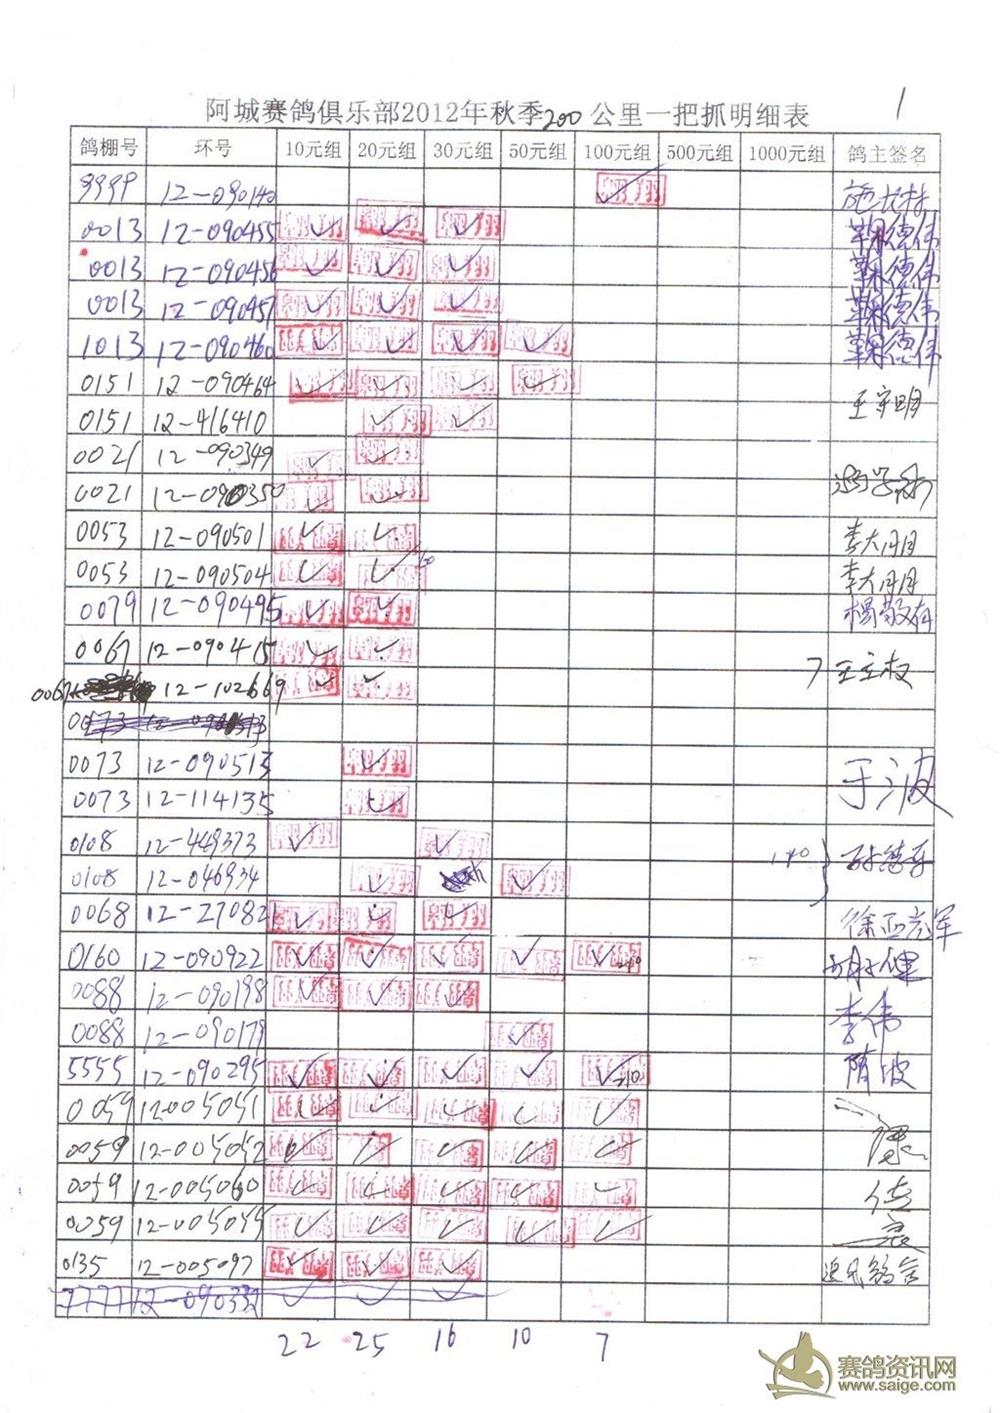 1
阿城赛鸽俱乐部2012年秋季200公里一把抓明细表
鸽棚号 环号 10元组 20元组 30元组 50元组 100元组 500元组 1000元组 鸽主签名
9999 12-090140
0013 12-090455 ✓ ✓ ✓ 鞠德伟
0013 12-090456 ✓ ✓ ✓ 鞠德伟
0013 12-090457 ✓ ✓ ✓ 鞠德伟
1013 12-090460 ✓ ✓ ✓ ✓ 鞠德伟
0151 12-090464 ✓ ✓ ✓ ✓
0151 12-416410 ✓ ✓ 王守明
0021 12-090349 ✓ ✓
0021 12-090350 ✓ ✓
0053 12-090501 ✓ ✓ 李大明
0053 12-090504 ✓ ✓ 李大明
0079 12-090495 ✓ ✓ 杨敬存
0067 12-090415 ✓ ✓
0067 12-102669 ✓ ✓ 王立权
0073 12-090513 ✓
0073 12-114135 ✓ 于波
0108 12-449373 ✓ ✓
0108 12-046934 ✓ ✓
0068 12-27082 ✓ ✓ ✓
0160 12-090922 ✓ ✓ ✓ ✓ ✓ 210 胡健
0088 12-090198 ✓ ✓ ✓
0088 12-090179 ✓ 李伟
5555 12-090295 ✓ ✓ ✓ ✓ ✓ 210 隋波
0059 12-005051 ✓ ✓ ✓ ✓ ✓
0059 12-005052 ✓ ✓ ✓ ✓ ✓
0059 12-005060 ✓ ✓ ✓ ✓ ✓
0059 12-005055 ✓ ✓ ✓ ✓ ✓
0135 12-005097 ✓ ✓ ✓
7777 12-090332 ✓ ✓ ✓
22 25 16 10 7
赛鸽资讯网
www.saige.com